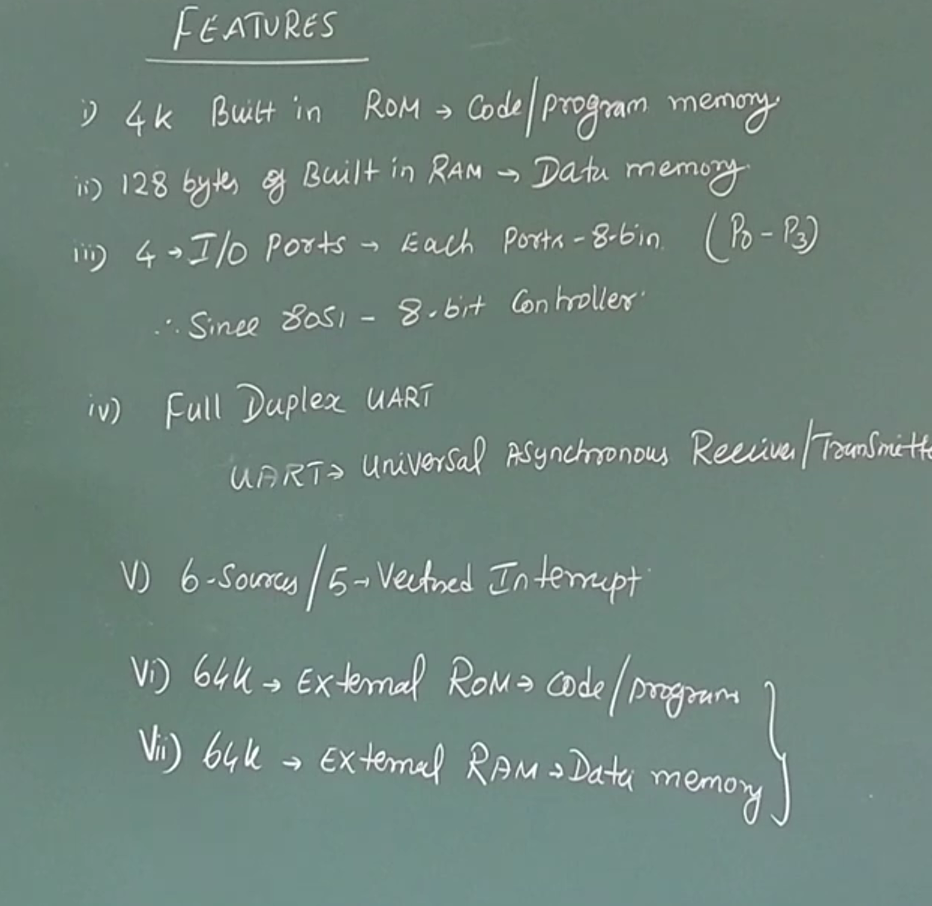 FEATURES
i) 4k Built in ROM → Code/program memory
ii) 128 bytes of Built in RAM → Data memory
iii) 4 → I/O Ports → Each Ports - 8-bin (P0 - P3)
∴ Since 8051 - 8-bit Controller
iv) Full Duplex UART
UART → Universal Asynchronous Receiver/Transmitte
V) 6-Sources/5 → Vectored Interrupt
Vi) 64k → External ROM → Code/program
Vii) 64k → External RAM → Data memory